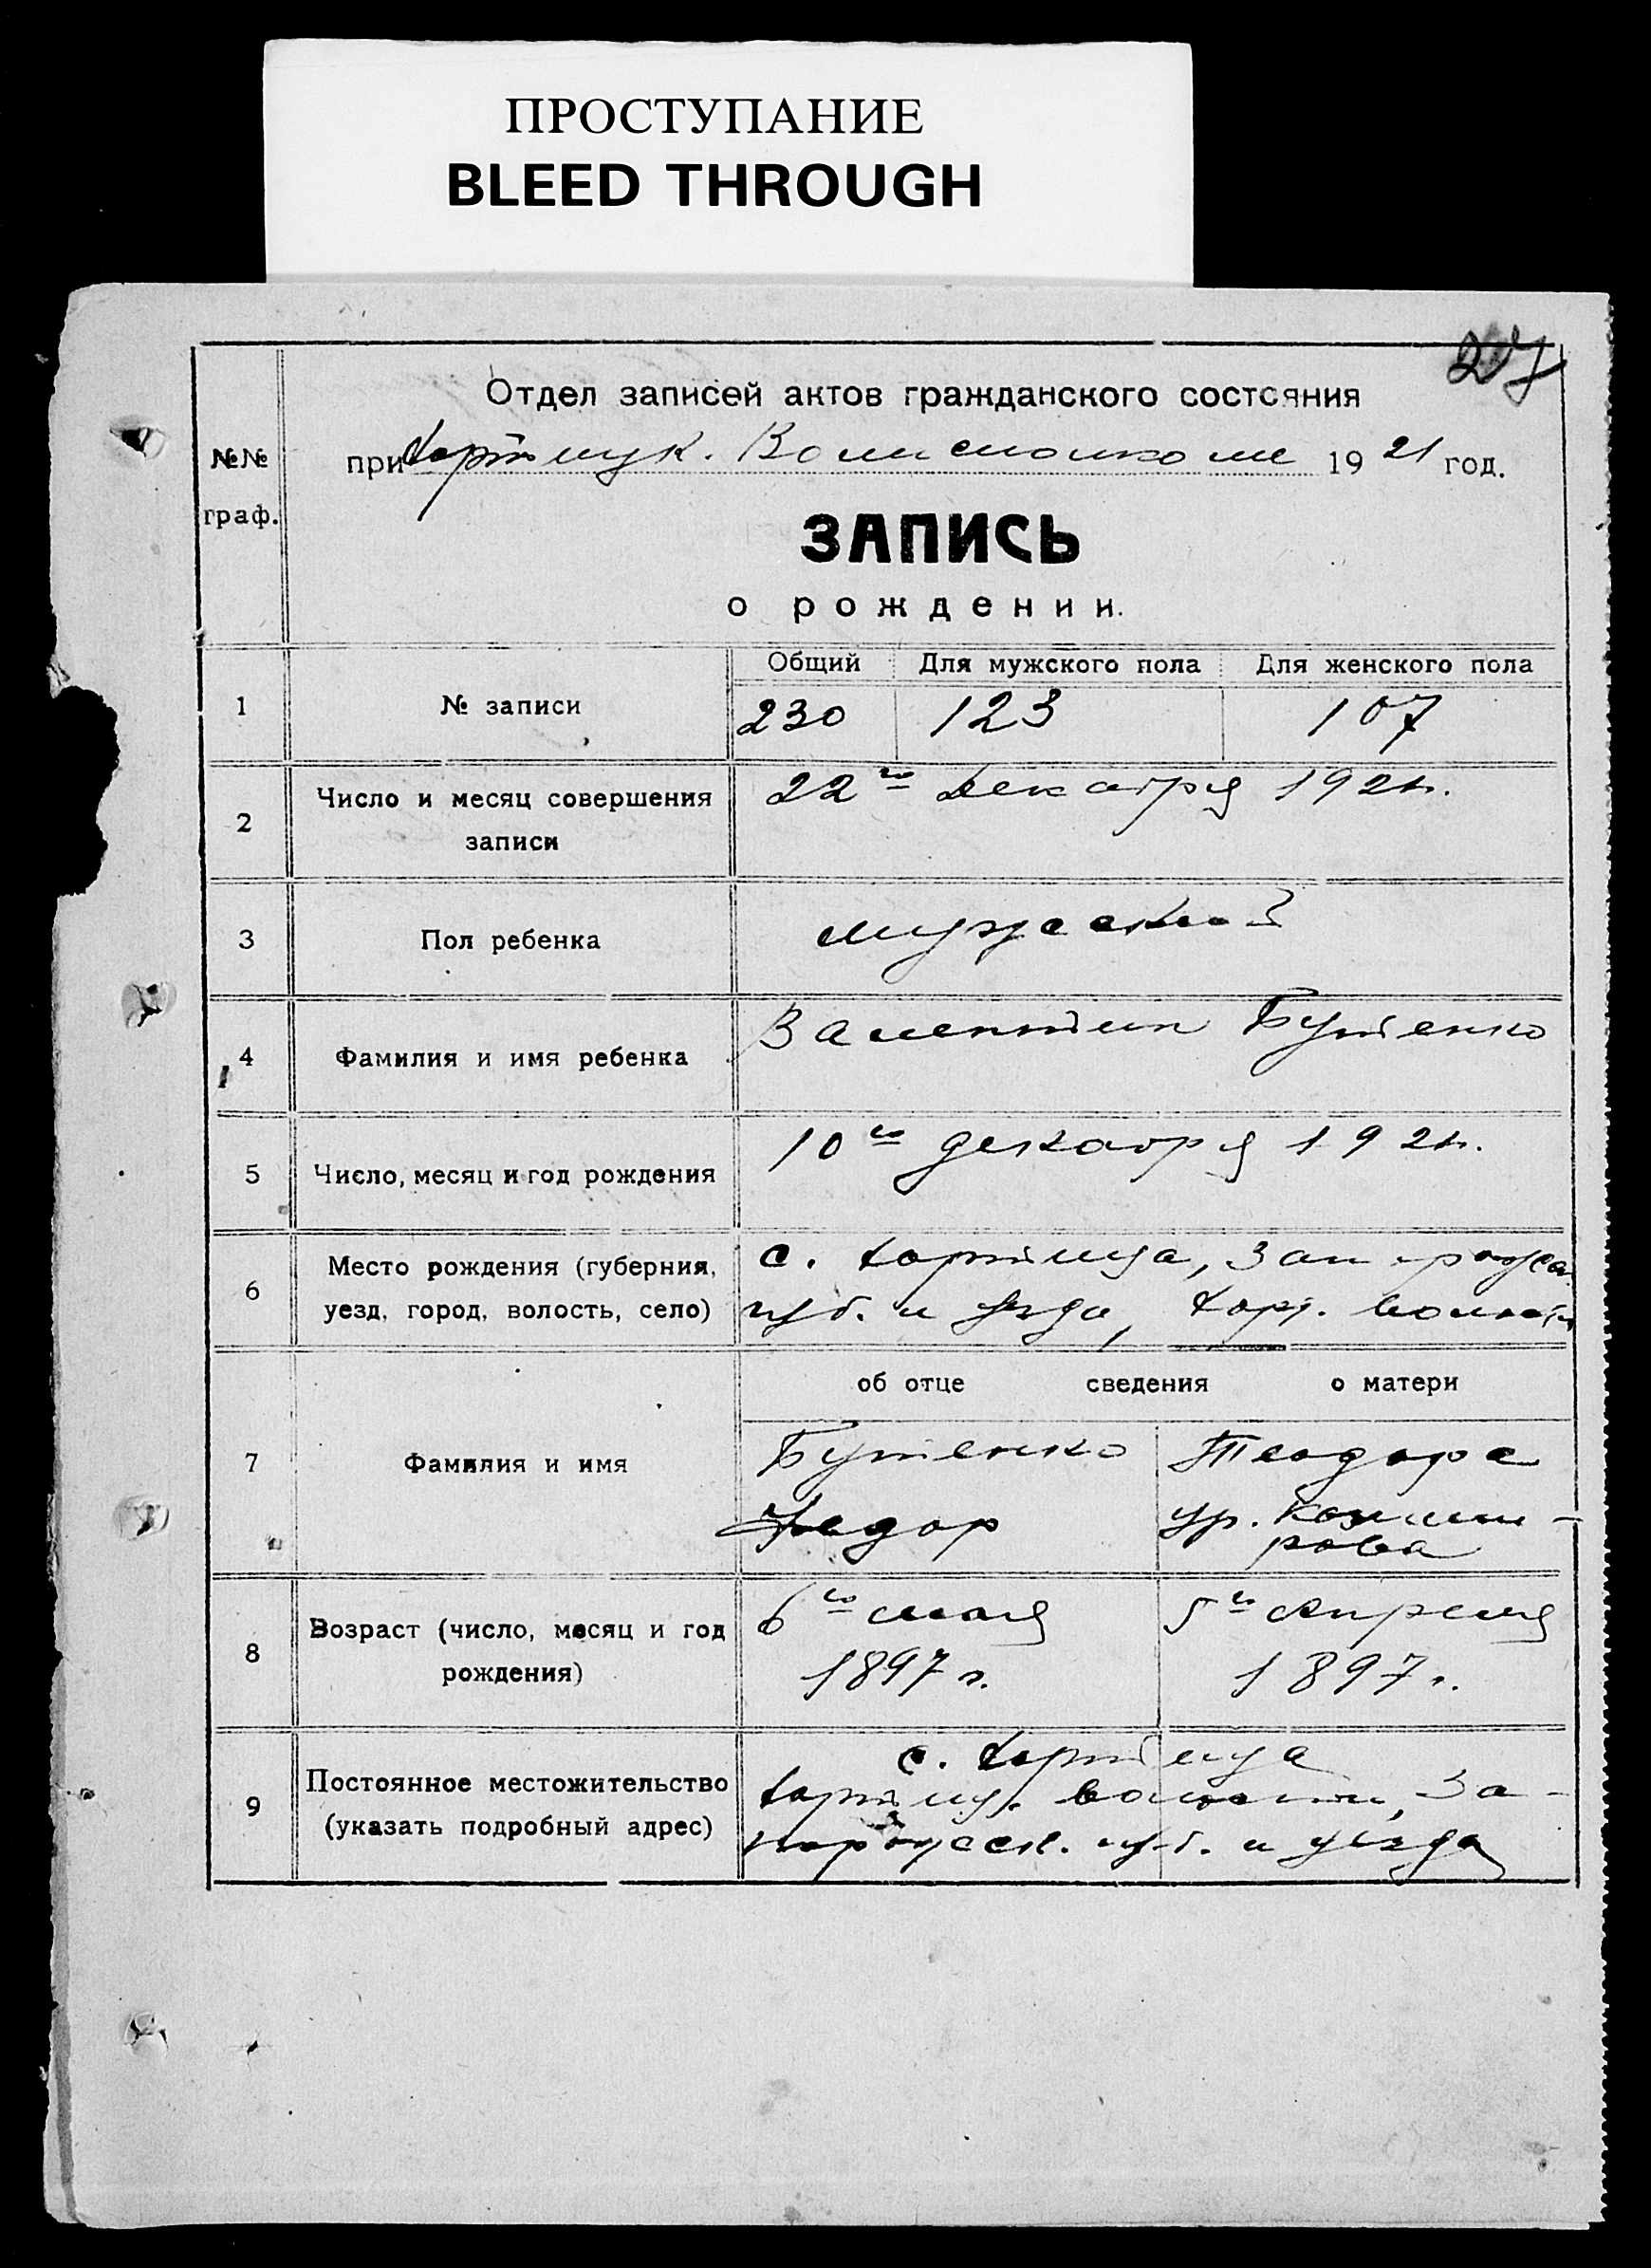 ПРОСТУПАНИЕ
BLEED THROUGH
27
Отдел записей актов гражданского состояния
№№ граф.
при Хортицк. Волисполкоме 1921 год.
ЗАПИСЬ
о рождении.
Общий Для мужского пола Для женского пола
1 № записи 230 123 107
2 Число и месяц совершения 22го Декабря 1921г.
записи
3 Пол ребенка мужской
4 Фамилия и имя ребенка Валентин Бутенко
5 Число, месяц и год рождения 10го декабря 1921г.
6 Место рождения (губерния, с. Хортица, Запорожск.
уезд, город, волость, село) губ. и уезда, Хорт. волости
об отце сведения о матери
7 Фамилия и имя Бутенко Теодора
Федор ур. Казими-
рова
8 Возраст (число, месяц и год 6го мая 5го Апреля
рождения) 1897 г. 1897 г.
с. Хортица
9 Постоянное местожительство Хортиц. волости, За-
(указать подробный адрес) порожск. губ. и уезда